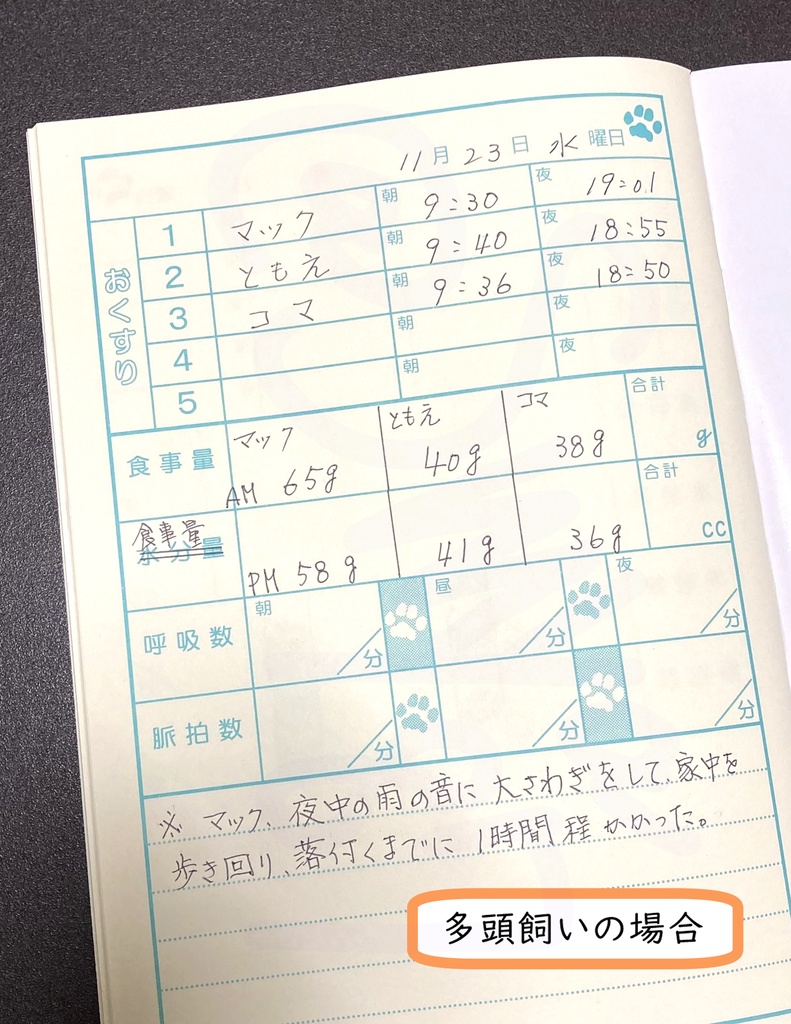 11月23日 水曜日
おくすり
1 マック 朝 9:30 夜 19:01
2 ともえ 朝 9:40 夜 18:55
3 コマ 朝 9:36 夜 18:50
4 朝 夜
5 朝 夜
食事量 マック AM 65g ともえ 40g コマ 38g 合計 g
食事量 水分量 PM 58g 41g 36g 合計 cc
呼吸数 朝 /分 昼 /分 夜 /分
脈拍数 /分 /分 /分
※ マック、夜中の雨の音に大さわぎをして、家中を
歩き回り、落付くまでに1時間程かかった。
多頭飼いの場合